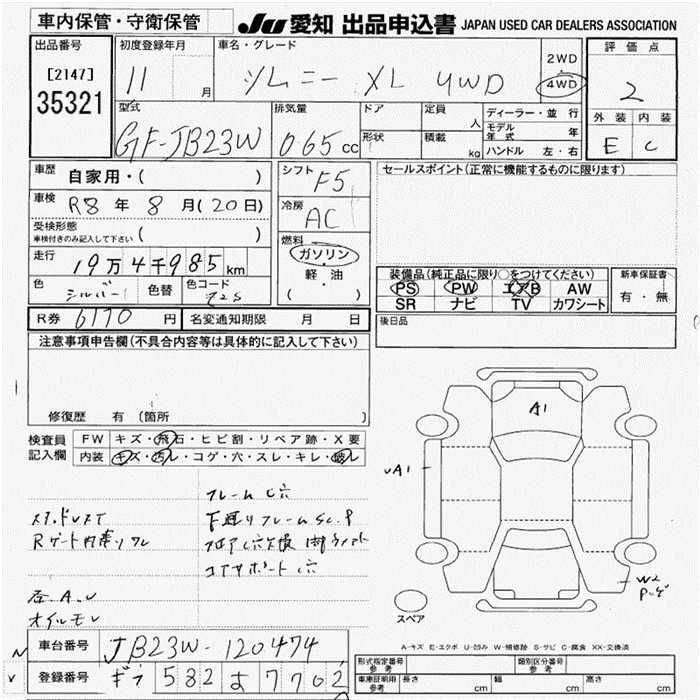 車内保管・守衛保管
JU 愛知 出品申込書 JAPAN USED CAR DEALERS ASSOCIATION
出品番号 初度登録年月 車名・グレード 評価点
[2147]
35321
11 月 ジムニー XL 4WD
2WD
・
4WD
2
外装 内装
E C
型式 排気量 ドア 定員 人 ディーラー・並行
GF-JB23W 065 cc 形状 積載 kg モデル年式 年
ハンドル 左・右
車歴 自家用・( )
シフト F5
セールスポイント(正常に機能するものに限ります)
車検 R8 年 8 月(20日)
冷房 AC
受検形態 ( )
車検付きのみ記入して下さい
燃料 ガソリン
軽・油
( )
走行 19万4千985km
色 シルバー 色替 色コード Z2S
装備品(純正品に限り○をつけてください) 新車保証書
PS PW エアB AW 有・無
SR ナビ TV カワシート
R券 6170 円 名変通知期限 月 日
後日品
注意事項申告欄(不具合内容等は具体的に記入して下さい)
修復歴 有 (箇所 )
検査員記入欄 FW キズ・飛石・ヒビ割・リペア跡・X要
内装 キズ・汚レ・コゲ・穴・スレ・キレ・破レ
フレームC穴
下廻りフレームSC.P
コアサポートC穴
A.U
オイルモレ
A1
A1
W2
スペア
A-キズ E-エクボ U-凹み W-補修跡 S-サビ C-腐食 XX-交換済
車台番号 JB23W-120474
登録番号 ギフ 582 よ 7702
形式指定番号 参考 類別区分番号 参考
車庫証明用 参考 長さ cm 幅 cm 高さ cm